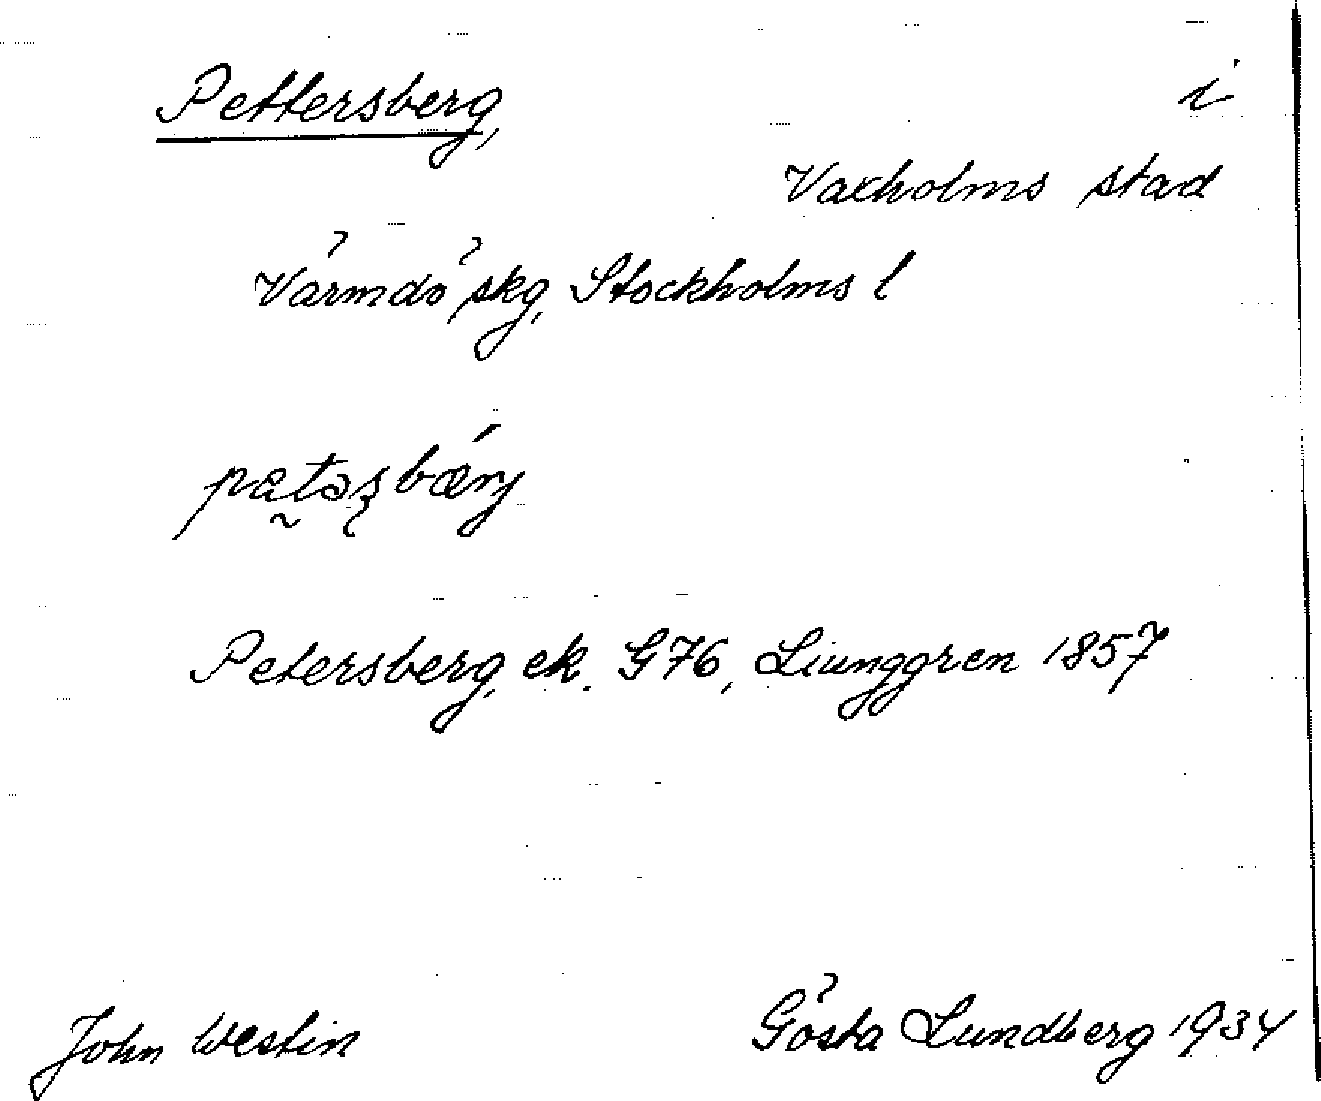 Pettersberg, i
Vaxholms stad
Värmdö skg, Stockholms l
Petersberg, ek. G76, Ljunggren 1857
John Westin Gösta Lundberg 1934